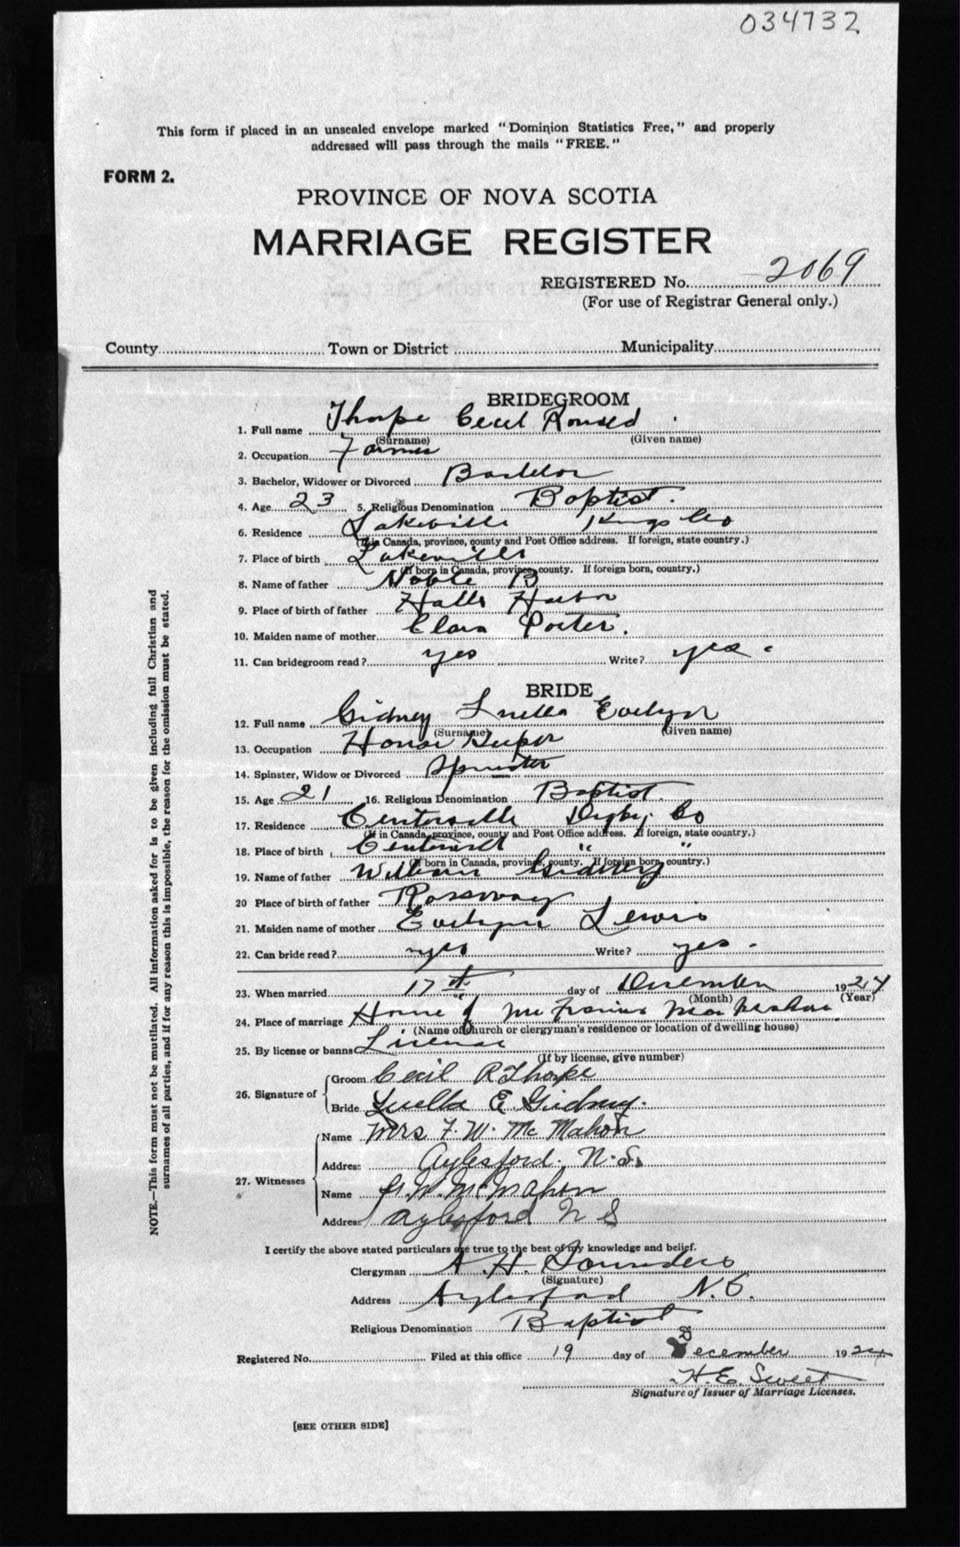 034732
This form if placed in an unsealed envelope marked "Dominion Statistics Free," and properly
addressed will pass through the mails "FREE."
FORM 2.
PROVINCE OF NOVA SCOTIA
MARRIAGE REGISTER
REGISTERED No. 2069
(For use of Registrar General only.)
County Town or District Municipality
BRIDEGROOM
1. Full name Thorpe Cecil
(Surname) (Given name)
2. Occupation Farmer
3. Bachelor, Widower or Divorced Bachelor
4. Age 23 5. Religious Denomination Baptist.
6. Residence Lakeville Kings Co
(If in Canada, province, county and Post Office address. If foreign, state country.)
7. Place of birth Lakeville
(If born in Canada, province, county. If foreign born, country.)
8. Name of father Noble B
9. Place of birth of father Halls Harbor
10. Maiden name of mother Clara Porter.
11. Can bridegroom read? yes Write? yes.
BRIDE
12. Full name Gidney Luella Evelyn
(Surname) (Given name)
13. Occupation House Keeper
14. Spinster, Widow or Divorced Spinster
15. Age 21 16. Religious Denomination Baptist.
17. Residence Centerville Digby Co
(If in Canada, province, county and Post Office address. If foreign, state country.)
18. Place of birth " "
(If born in Canada, province, county. If foreign born, country.)
19. Name of father William Gidney
20 Place of birth of father Rossway
21. Maiden name of mother Evelyn Lewis
22. Can bride read? yes Write? yes.
23. When married 17th day of December 1924
(Month) (Year)
24. Place of marriage Home of
(Name of church or clergyman's residence or location of dwelling house)
25. By license or banns License
(If by license, give number)
26. Signature of Groom Cecil R Thorpe
Bride Luella E Gidney.
27. Witnesses Name Mrs F. W. Mc Mahon
Address Aylesford, N.S.
Name F. W. McMahon
Address Aylesford N S
I certify the above stated particulars are true to the best of my knowledge and belief.
Clergyman A. H. Saunders
(Signature)
Address Aylesford N.S.
Religious Denomination Baptist
Registered No. Filed at this office 19 day of December 1924
H. E. Sweet
Signature of Issuer of Marriage Licenses.
[SEE OTHER SIDE]
NOTE.—This form must not be mutilated. All information asked for is to be given including full Christian and
surnames of all parties, and if for any reason this is impossible, the reason for the omission must be stated.